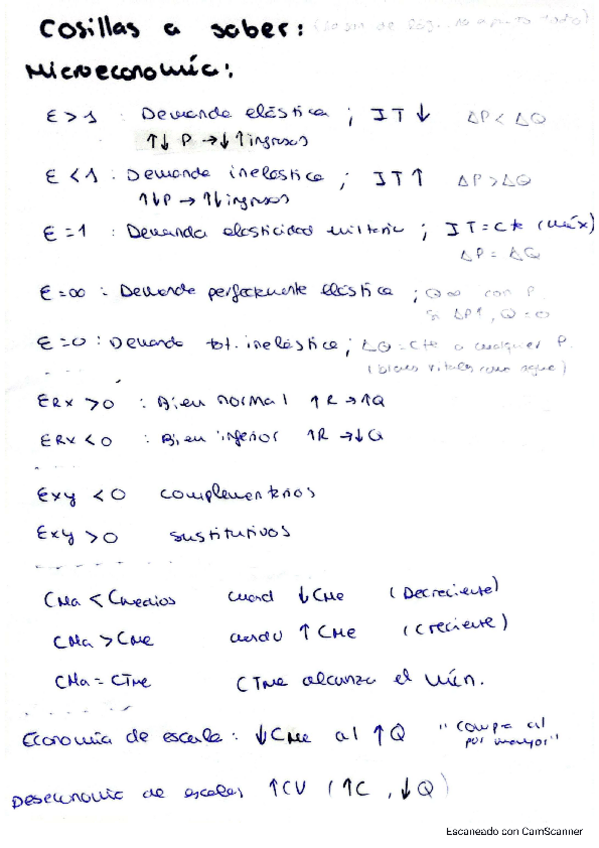 Cosillas a saber:
Microeconomía:
E > 1 : Demanda elástica ; IT ↓ ΔP < ΔQ
↑↓ P → ↓↑ ingresos
E < 1 : Demanda inelástica ; IT ↑ ΔP > ΔQ
↑↓ P → ↑↓ ingresos
E = 1 : Demanda elasticidad unitaria ; IT = Cte (máx)
ΔP = ΔQ
E = ∞ : Demanda perfectamente elástica ; Q ∞ con P.
Si ΔP↑, Q = 0
E = 0 : Demanda tot. inelástica ; ΔQ = Cte a cualquier P.
(bienes vitales como agua)
ERx > 0 : Bien normal ↑R → ↑Q
ERx < 0 : Bien inferior ↑R → ↓Q
Exy < 0 complementarios
Exy > 0 sustitutivos
CMa < Cmedios cuand ↓ CMe (Decreciente)
CMa > CMe cuando ↑ CMe (Creciente)
CMa = CTMe CTMe alcanza el mín.
Economía de escala : ↓ CMe al ↑ Q "compra al
por mayor"
Deseconomía de escala, ↑ CV (↑C , ↓Q)
Escaneado con CamScanner